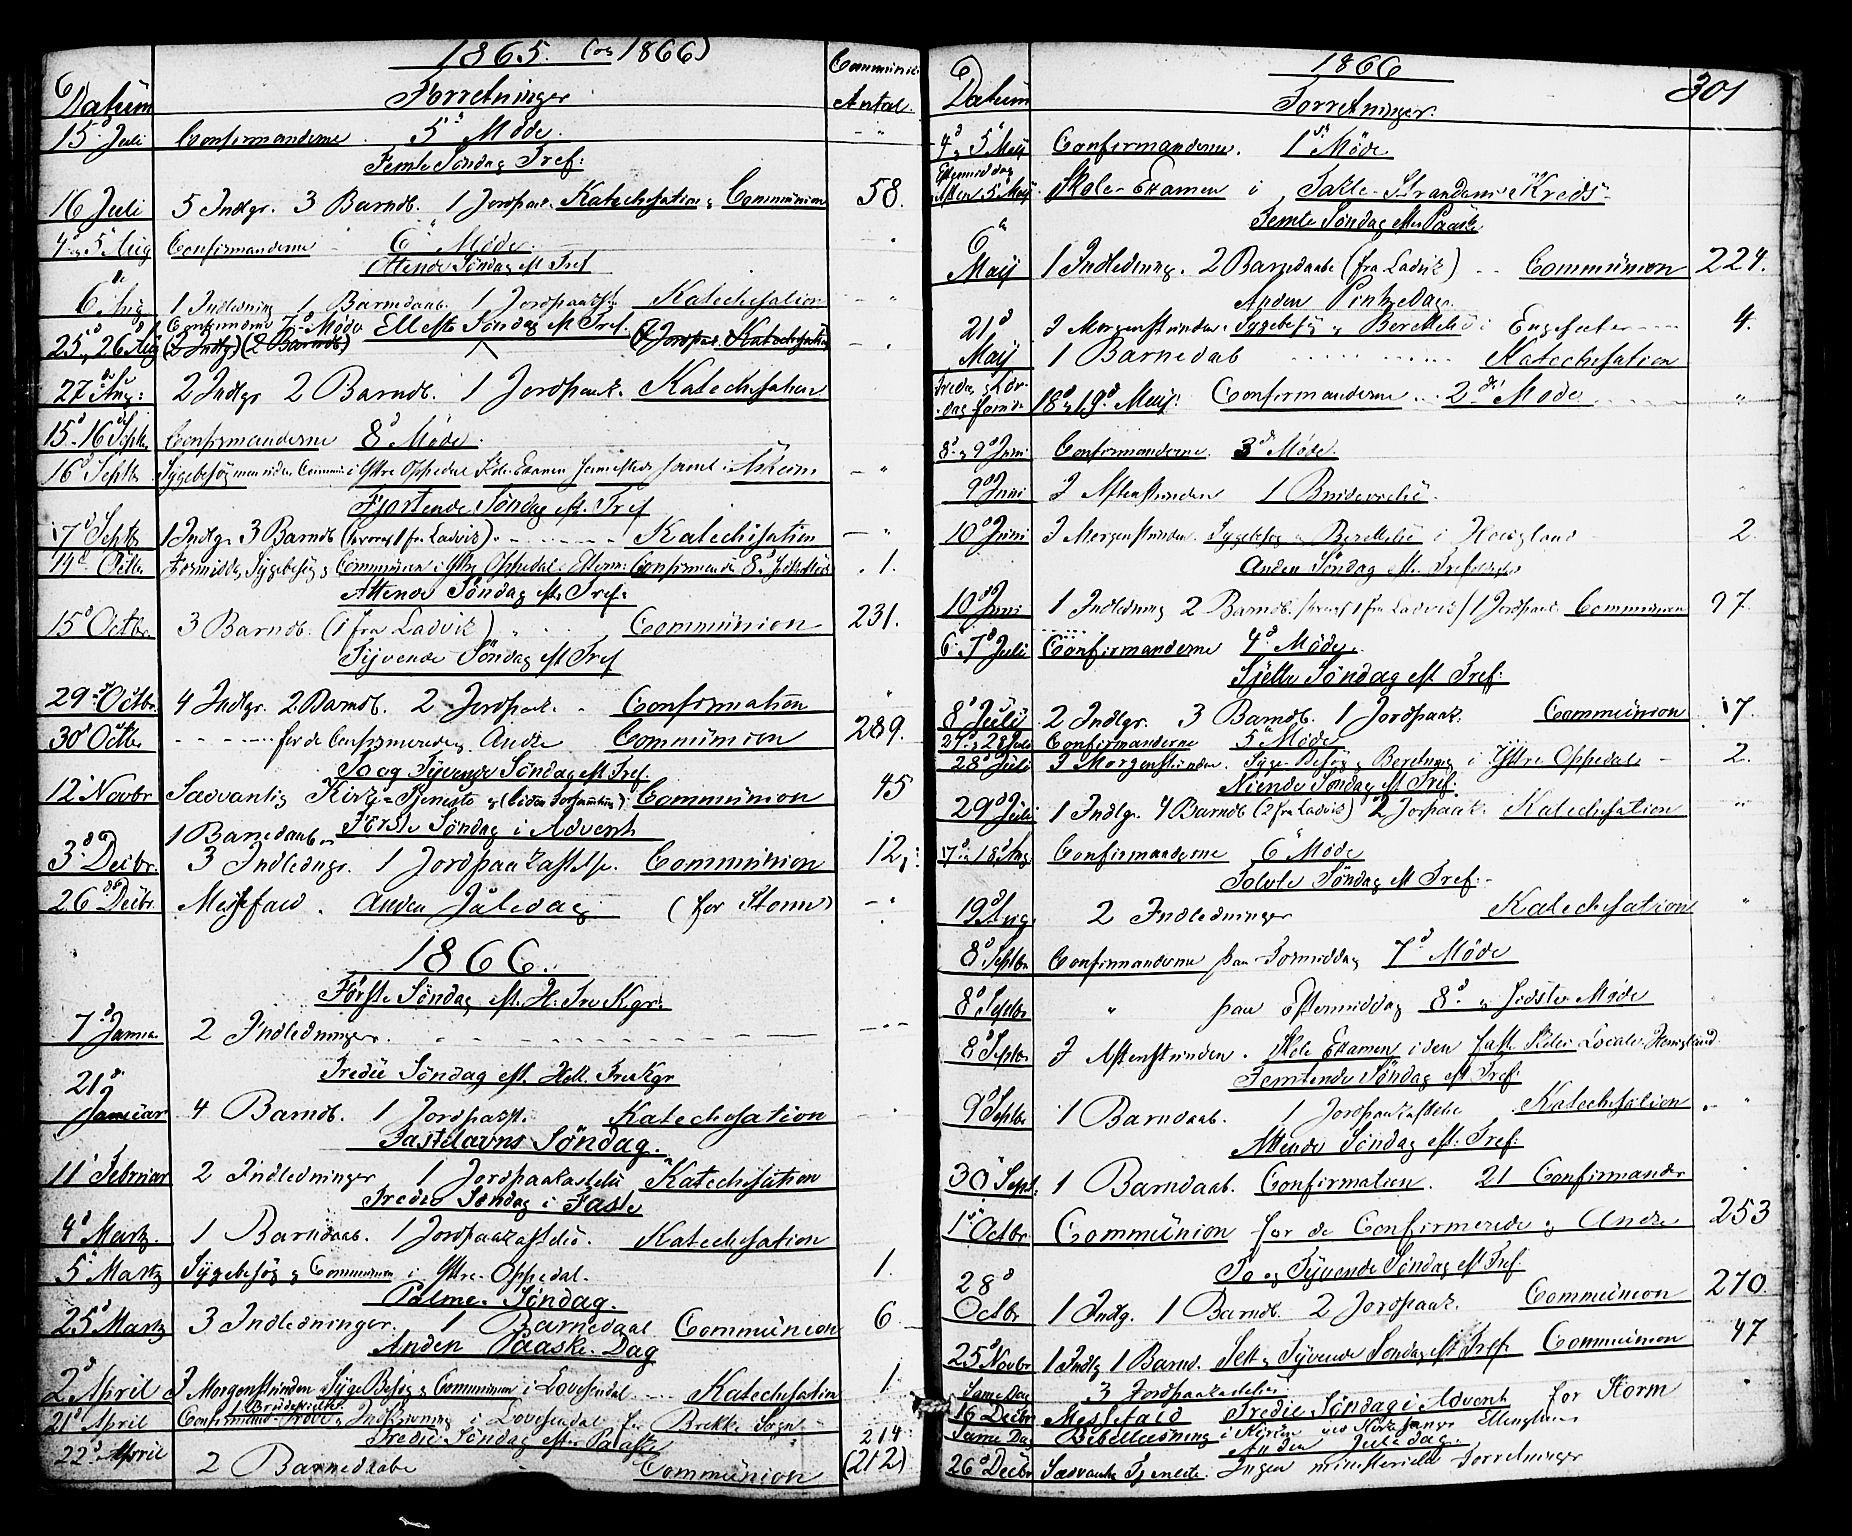 1865. (og 1866)
Datum Forretninger Communic: Antal.
15d Juli Confirmanderne 5d Møde. - "
Femte Søndag Tref:
16 Juli 5 Indgr. 3 Barndb. 1 Jordpaak. Katechisation og Communion 58.
4d og 5d Aug Confirmanderne 6 Møde. "
Ottende Søndag eft Tref
6te Aug 1 Indledning 1 Barnedaab. 1 Jordpaakst. Katechisation - "
Confirmderne 7d Møde Ellefte Søndag eft Tref.
25d og 26d Aug (2 Indlg) (2 Barndb) (1 Jordpaa. Katechisation - "
27de Aug: 2 Indlgr 2 Barndb. 1 Jordpaak. Katechisation
15d-16d Septbr Confirmanderne 8d Møde. "
16d Septbr Sygebesøg men uden Commun: i Yttre Oppedal Skole-Examen sammesteds samt i Askeim - "
Fjortende Søndag eft. Tref
17d Septbr 1 Indlgr 3 Barndb (hvoraf 1 fra Ladvik). Katechisation - "
14d Octbr Formiddag Sygebesøg og Communion i Yttre Oppedal. Efterm: Confirmandr: 8d og Sidste Møde . 1.
Attende Søndag eft. Tref.
15d Octbr. 3 Barndb. (1 fra Ladvik) Communion 231.
Tyvende Søndag eft Tref
29de Octbr. 4 Indlgr. 2 Barndb. 2 Jordpaak. Confirmation "
30d Octbr for de Confirmerede og Andre Communion 289.
To og Tyvende Søndag eft Tref.
12' Novbr Sædvanlig Kirke-Tjeneste og (liden Forsamling): Communion 45
1 Barnedaab. Første Søndag i Advent
3die Decbr. 3 Indledngr. 1 Jordpaakastelse. Communion 12.
26de Decbr. Messefald. Anden Juledag (for Storm) - "
1866.
Første Søndag eft. H: Tre Kgr.
7d Januar 2 Indledninger. - "
Tredie Søndag eft. Hell. Tre Kgr
21d Januar 4 Barndb. 1 Jordpaakst. Katechisation
Fastelavns Søndag.
11' Februar 2 Indledninger 1 Jordpaakastelse Katechisation
Tredie Søndag i Faste
4d Martz. 1 Barndaab. 1 Jordpaakastelse. Katechisation
5d Martz Sygebesøg og Communion i Yttre-Oppedal. 1.
Palme-Søndag.
25d Martz 3 Indledninger. 1 Barnedaab Communion 6
Anden Paaske-Dag
2d April I Morgenstunden Syge-Besøg og Communion i Lovesendal. Katechisation 1
1 Brudevielse.
21d April Confirmand-Prøve og Indskrivning i Lovesendal for Brekke Sogn 214:
Tredie Søndag efter Paaske
22d April 2 Barnedaabe Communion (212)
1866
301
Datum Forretninger.
4d og 5 Maij Confirmanderne. 1ste Møde
Eftermiddag Aften 5 Maij Skole-Examen i Takle-Strandens Kreds-
Femte Søndag eft. Paaske
6te Maij 1 Indledning. 2 Barnedaabe (fra Ladvik) Communion 224.
Anden Pintsedag.
21d Maij I Morgenstunden. Sygebesøg og Berettelse i Engesæter 4.
1 Barnedab Katechisation
Fredag og Lørdag forud 18d og 19d Maij. Confirmanderne 2det Møde. "
8d og 9d Juni Confirmanderne. 3die Møde.
9d Juni I Aftenstunden 1 Brudevielse.
10d Juni I Morgenstunden. Sygebesøg og Berettelse i Hougland 2.
Anden Søndag eft. Tref
10d Juni 1 Indledning 2 Barndb. /hvoraf 1 fra Ladvik/ 1 Jordpaak. Communion 97.
6-7d Juli Confirmanderne 4d Møde.
Sjette Søndag eft Tref:
8d Juli 2 Indlgr. 3 Barndb. 1 Jordpaak. Communion 17.
27d og 28 Juli Confirmanderne 5te Møde
28d Juli I Morgenstunden. Syge-Besøg og Beretning i Yttre Oppedal 2.
Niende Søndag eft Tref.
29d Juli 1 Indlgr. 4 Barndb (2 fra Ladvik) 2 Jordpaak. Katechisation "
17d og 18d Aug. Confirmanderne 6te Møde
Tolvte Søndag eft Tref.
19d Aug. 2 Indledninger Katechisation "
8d Septbr. Confirmanderne paa Formiddag 7d Møde
8d Septbr. " paa Eftermiddag 8d og Sidste Møde "
8d Septbr I Aftenstunden. Skole Examen i den faste Skoles Locale. Hougland.
Femtende Søndag eft Tref:
9d Septbr. 1 Barndaab. 1 Jordpaakastelse Katechisation "
Attende Søndag eft. Tref:
30' Sept. 1 Barndaab. Confirmation. 21 Confirmander
1ste Octbr. Communion for de Confirmerede og Andre 253
To og Tyvende Søndag eft Tref.
28d Octbr 1 Indlg. 1 Barndb. 2 Jordpaak. Communion 270.
25d Novbr 1 Indlg 1 Barnd. Sex og Tyvende Søndag eft Tref. Communion 47
Samme Dag 3 Jordpaakastelser
16 Decbr Messefald Tredie Søndag i Advent for Storm
Samme Dag Bibellæsning i Kirken ved Kirkesanger Ellinghaus
Anden Juledag.
26d Decbr Sædvanlig Tjeneste. Ingen ministerielle Forretninger